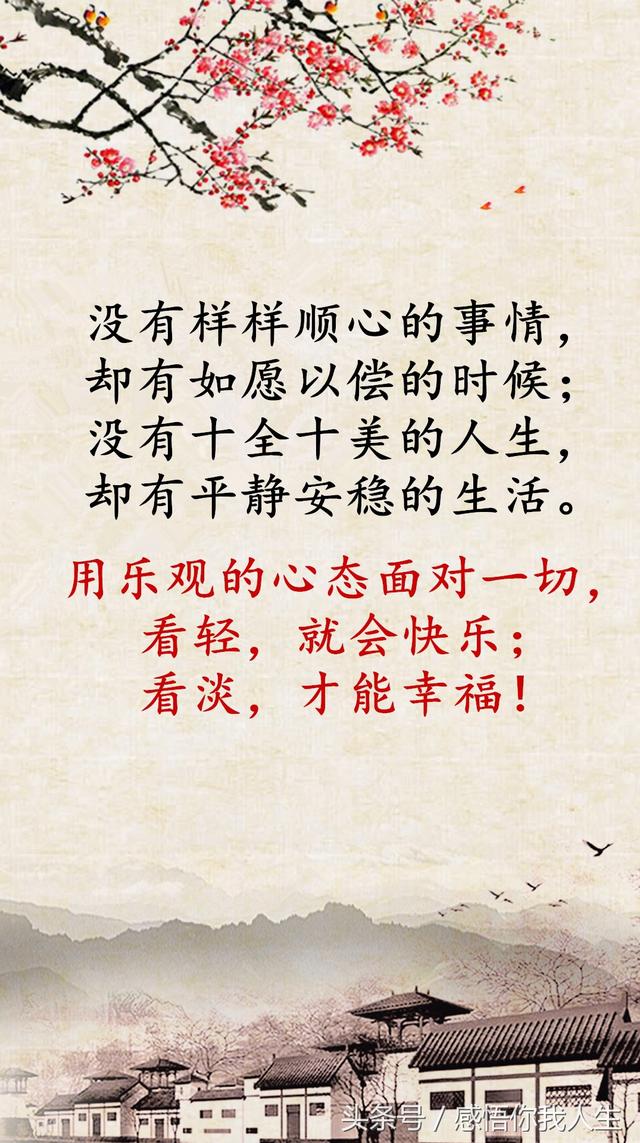 没有样样顺心的事情，
却有如愿以偿的时候；
没有十全十美的人生，
却有平静安稳的生活。
用乐观的心态面对一切，
看轻，就会快乐；
看淡，才能幸福！
头条号 / 感悟你我人生